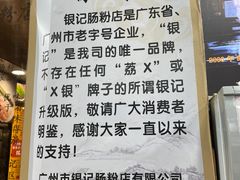 银记肠粉店是广东省、
广州市老字号企业，“银
记”是我司的唯一品牌，
不存在任何“荔X”或
“X银”牌子的所谓银记
升级版，敬请广大消费者
明鉴，感谢大家一直以来
的支持！
广州市银记肠粉店有限公司